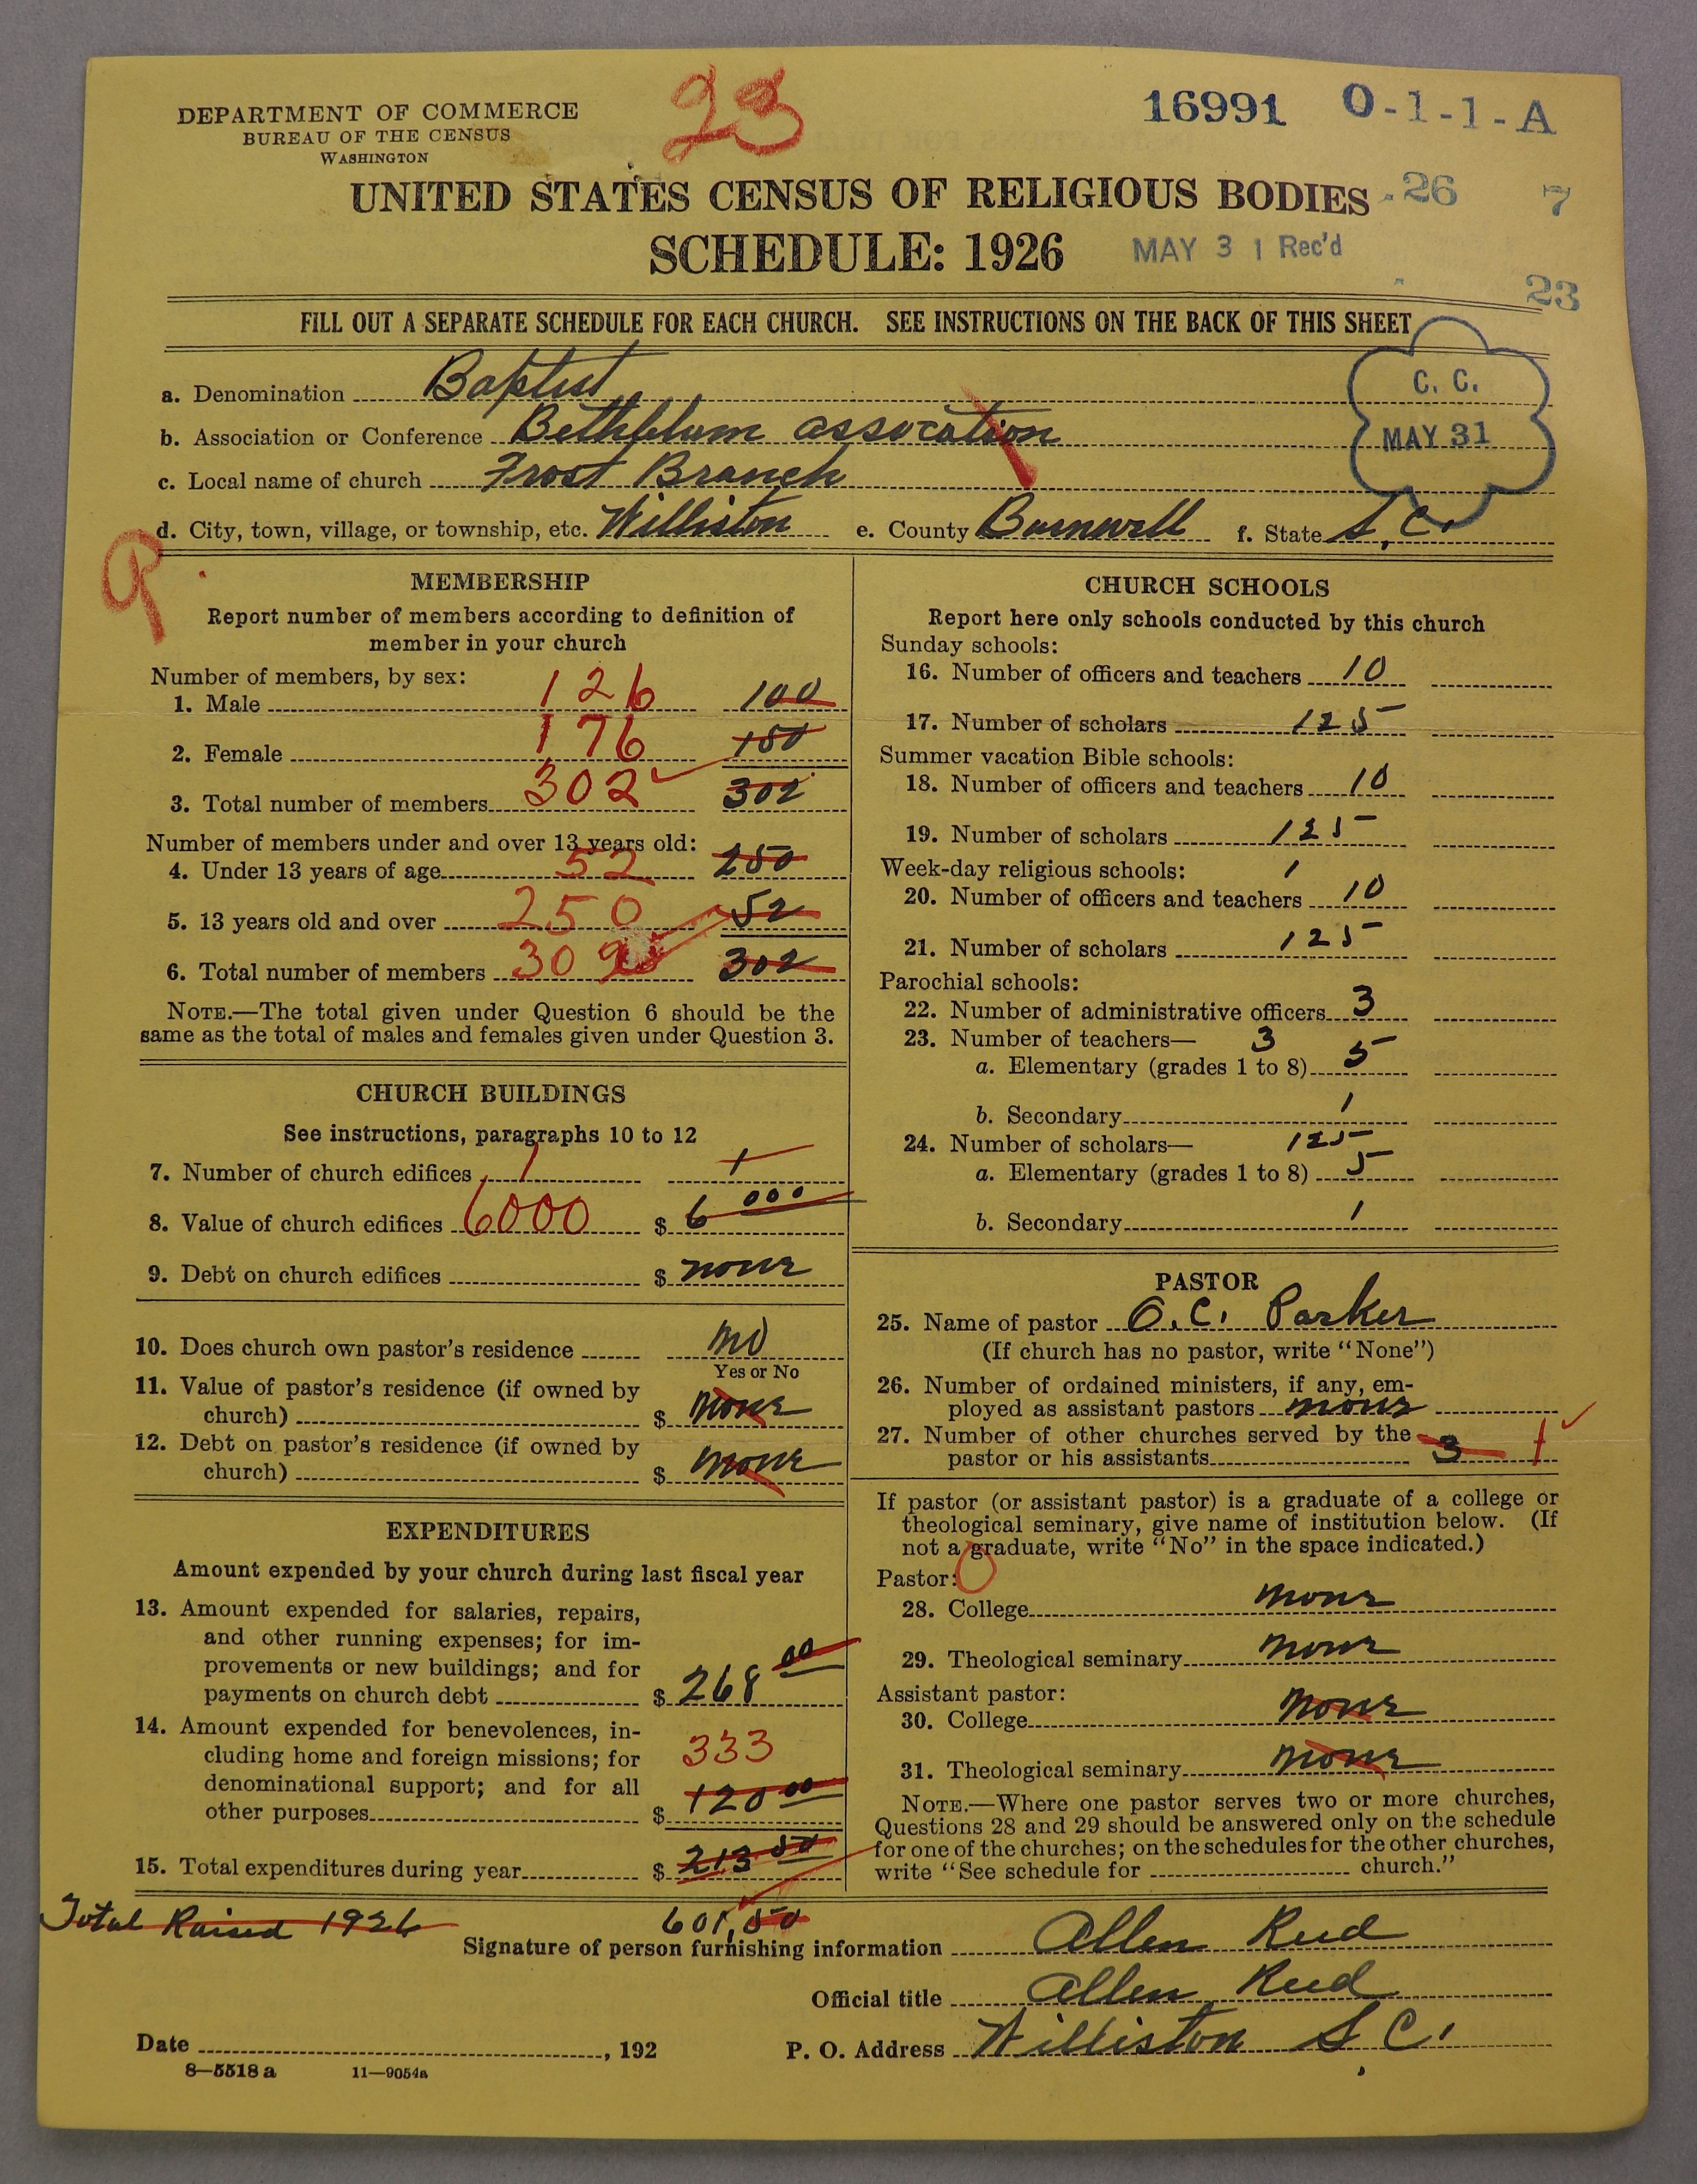 23
DEPARTMENT OF COMMERCE
BUREAU OF THE CENSUS
WASHINGTON
16991 O-1-1-A
UNITED STATES CENSUS OF RELIGIOUS BODIES
26 7
SCHEDULE: 1926
MAY 31 Rec'd
23
FILL OUT A SEPARATE SCHEDULE FOR EACH CHURCH. SEE INSTRUCTIONS ON THE BACK OF THIS SHEET
C. C.
MAY 31
a. Denomination Baptist
b. Association or Conference Bethlehum assocation
c. Local name of church Frost Branch
d. City, town, village, or township, etc. Williston e. County Barnwell f. State S.C.
9
MEMBERSHIP
Report number of members according to definition of
member in your church
Number of members, by sex:
1. Male 126 100
2. Female 176 150
3. Total number of members 302 302
Number of members under and over 13 years old:
4. Under 13 years of age 52 250
5. 13 years old and over 250 52
6. Total number of members 302 302
NOTE.—The total given under Question 6 should be the
same as the total of males and females given under Question 3.
CHURCH BUILDINGS
See instructions, paragraphs 10 to 12
7. Number of church edifices 1 1
8. Value of church edifices 6000 $ 6 000
9. Debt on church edifices $ none
10. Does church own pastor's residence no
Yes or No
11. Value of pastor's residence (if owned by
church) $ none
12. Debt on pastor's residence (if owned by
church) $ none
EXPENDITURES
Amount expended by your church during last fiscal year
13. Amount expended for salaries, repairs,
and other running expenses; for im-
provements or new buildings; and for
payments on church debt $ 268 00
14. Amount expended for benevolences, in-
cluding home and foreign missions; for 333
denominational support; and for all
other purposes $ 120 00
15. Total expenditures during year $ 213 50
CHURCH SCHOOLS
Report here only schools conducted by this church
Sunday schools:
16. Number of officers and teachers 10
17. Number of scholars 125
Summer vacation Bible schools:
18. Number of officers and teachers 10
19. Number of scholars 125
Week-day religious schools: 1
20. Number of officers and teachers 10
21. Number of scholars 125
Parochial schools:
22. Number of administrative officers 3
23. Number of teachers— 3
a. Elementary (grades 1 to 8) 5
b. Secondary 1
24. Number of scholars— 125
a. Elementary (grades 1 to 8) 5
b. Secondary 1
PASTOR
25. Name of pastor O. C. Parker
(If church has no pastor, write "None")
26. Number of ordained ministers, if any, em-
ployed as assistant pastors none
27. Number of other churches served by the
pastor or his assistants 3 1
If pastor (or assistant pastor) is a graduate of a college or
theological seminary, give name of institution below. (If
not a graduate, write "No" in the space indicated.)
Pastor: 0
28. College none
29. Theological seminary none
Assistant pastor:
30. College none
31. Theological seminary none
NOTE.—Where one pastor serves two or more churches,
Questions 28 and 29 should be answered only on the schedule
for one of the churches; on the schedules for the other churches,
write "See schedule for church."
Total Raised 1926 601,50
Signature of person furnishing information Allen Reed
Official title Allen Reed
Date , 192 P. O. Address Williston S.C.
8—5518 a 11—9054a